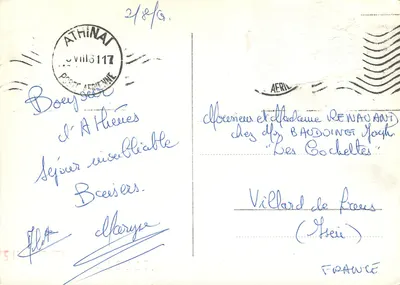 2/8/61
ATHINAI
VIII 61 17
POSTE AERIENNE
AERIE
Bonjour
d'Athènes
Séjour inoubliable
Baisers.
Maryse
Monsieur et Madame RENAVAND
chez Mr BAUDOINGT Joseph
"Les Cochettes"
Villard de Lans
(Isère)
FRANCE